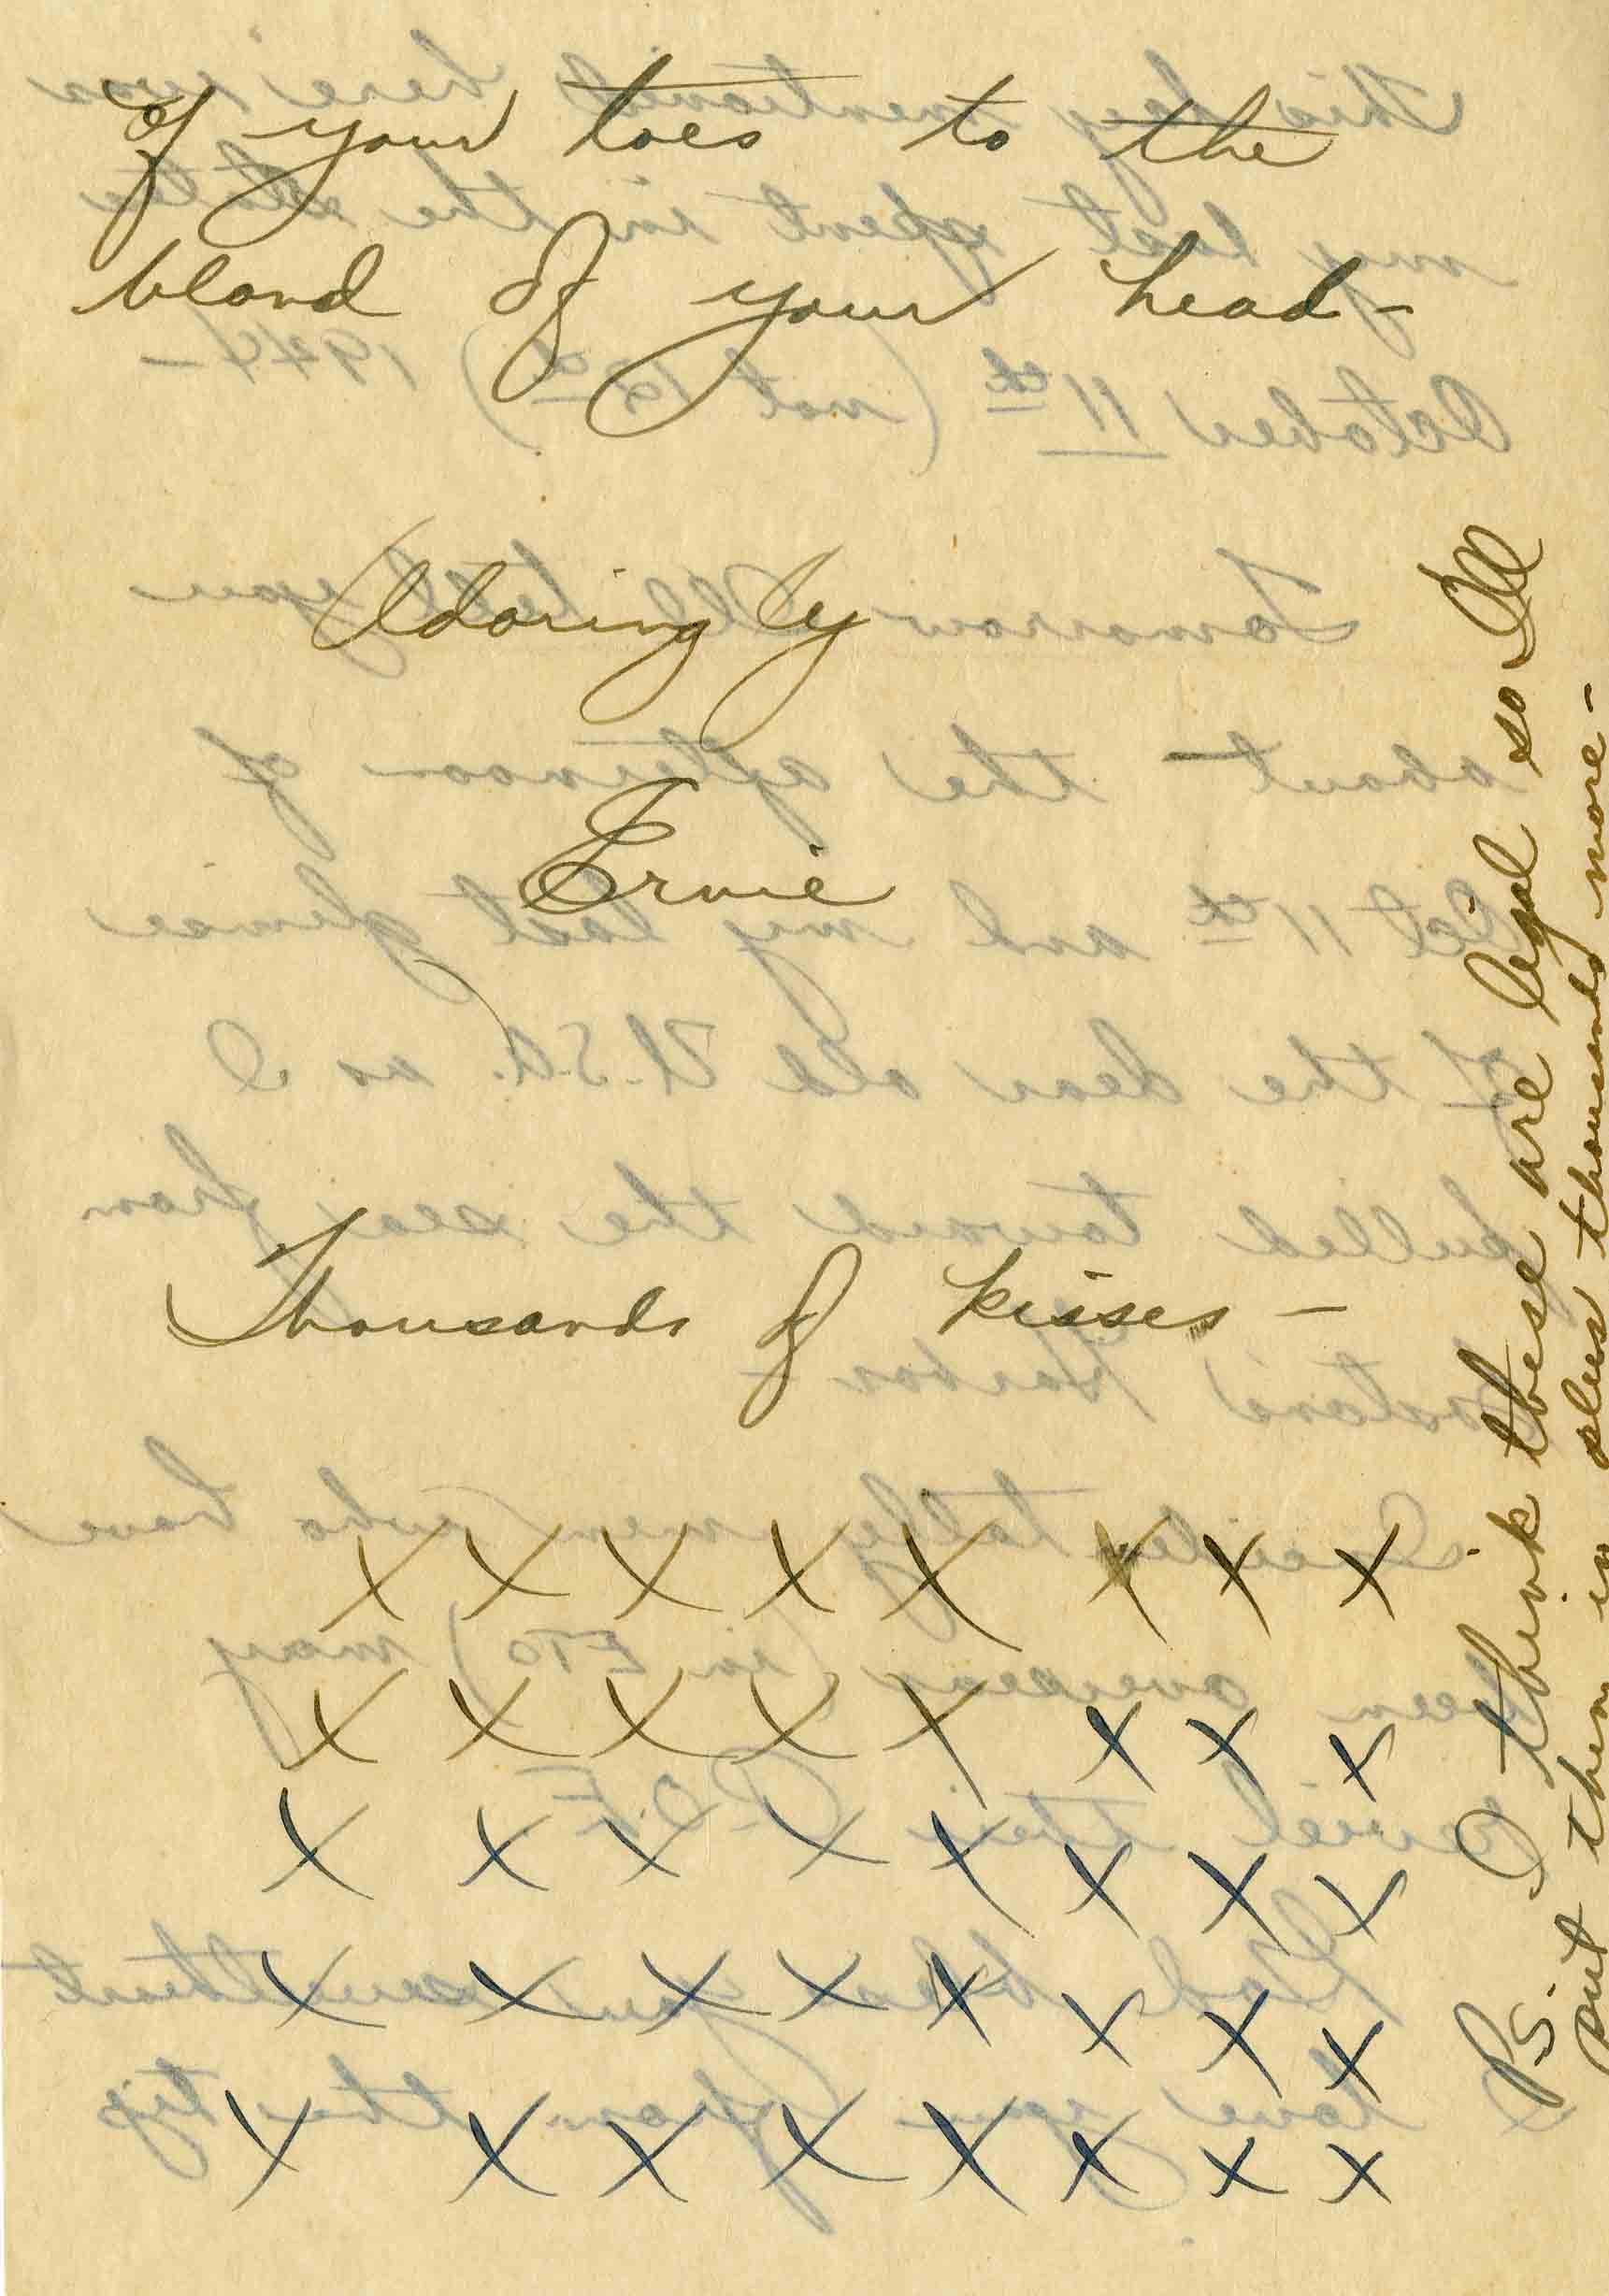 of your toes to the
blond of your head -
Adoringly
Ernie
Thousands of kisses -
X X X X X X X X
X X X X X X X X
X X X X X X X X
X X X X X X X X
X X X X X X X X
P.S. I think these are legal so I'll
put them in plus thousands more -